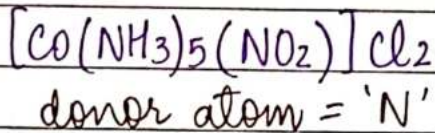 [CO(NH3)5(NO2)]Cl2
donor atom = 'N'